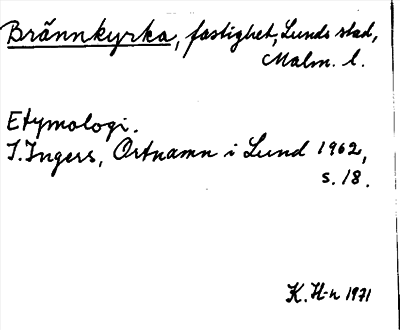 Brännkyrka, fastighet, Lunds stad,
Malm. l.
Etymologi.
I. Ingers, Ortnamn i Lund 1962,
s. 18.
K. H-n 1971